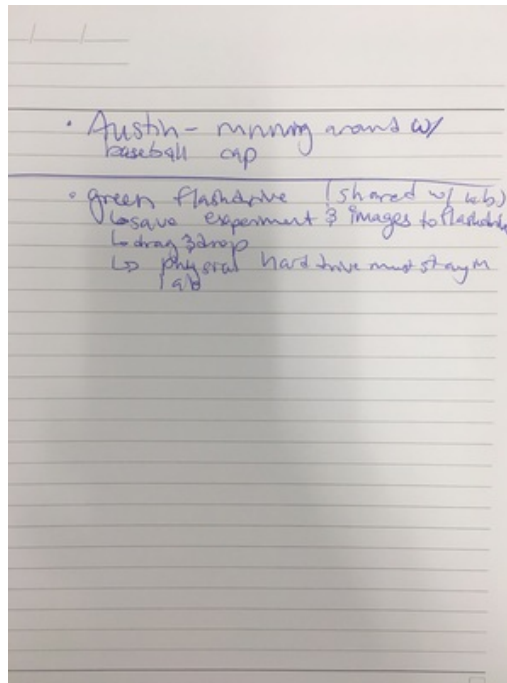 • Austin - running around w/
baseball cap
• green flashdrive (shared w/ lab)
↳ save experiment & images to flashdrive
↳ drag & drop
↳ physical hard drive must stay in
lab